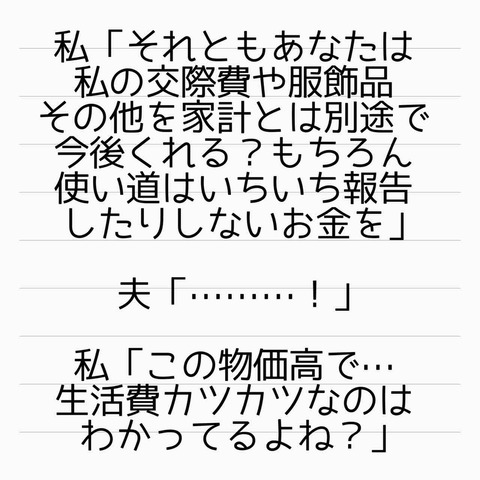 私「それともあなたは
私の交際費や服飾品
その他を家計とは別途で
今後くれる？もちろん
使い道はいちいち報告
したりしないお金を」
夫「………！」
私「この物価高で…
生活費カツカツなのは
わかってるよね？」